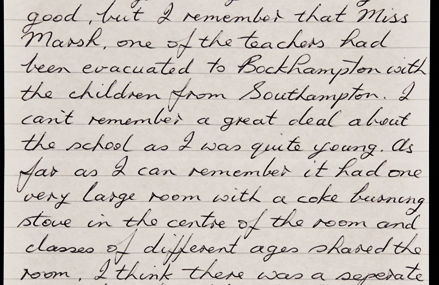 good, but I remember that Miss
Marsh, one of the teachers had
been evacuated to Bockhampton with
the children from Southampton. I
can't remember a great deal about
the school as I was quite young. As
far as I can remember it had one
very large room with a coke burning
stove in the centre of the room and
classes of different ages shared the
room. I think there was a seperate